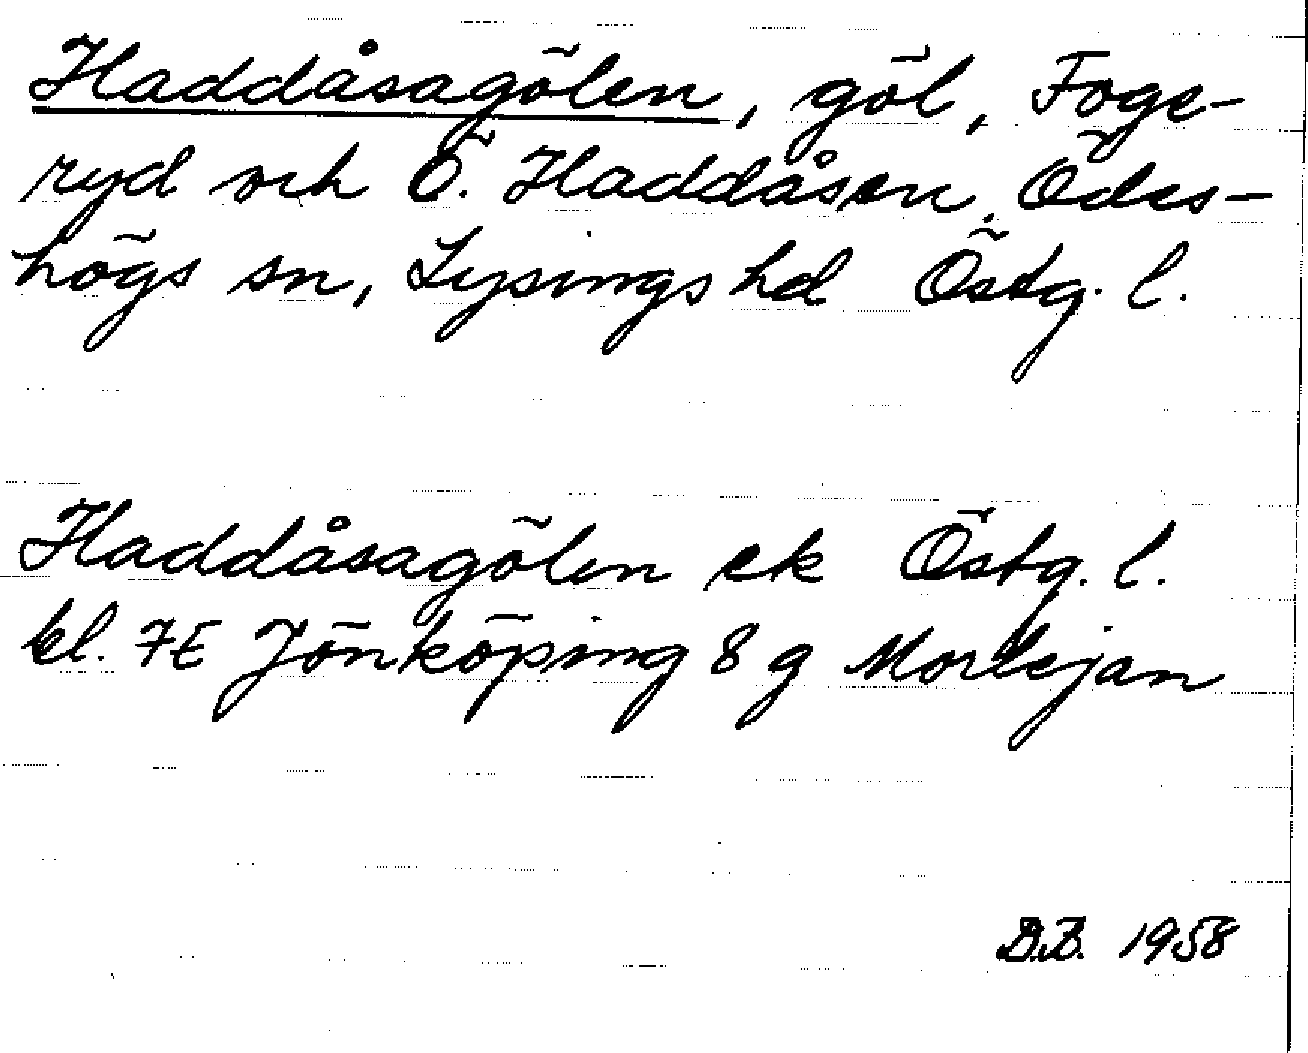 Haddåsagölen, göl, Foge-
ryd och Ö. Haddåsen, Ödes-
högs sn, Lysings hd Östg. l.
Haddåsagölen ek Östg. l.
kl. 7E Jönköping 8 g Mortejan
D.B. 1958